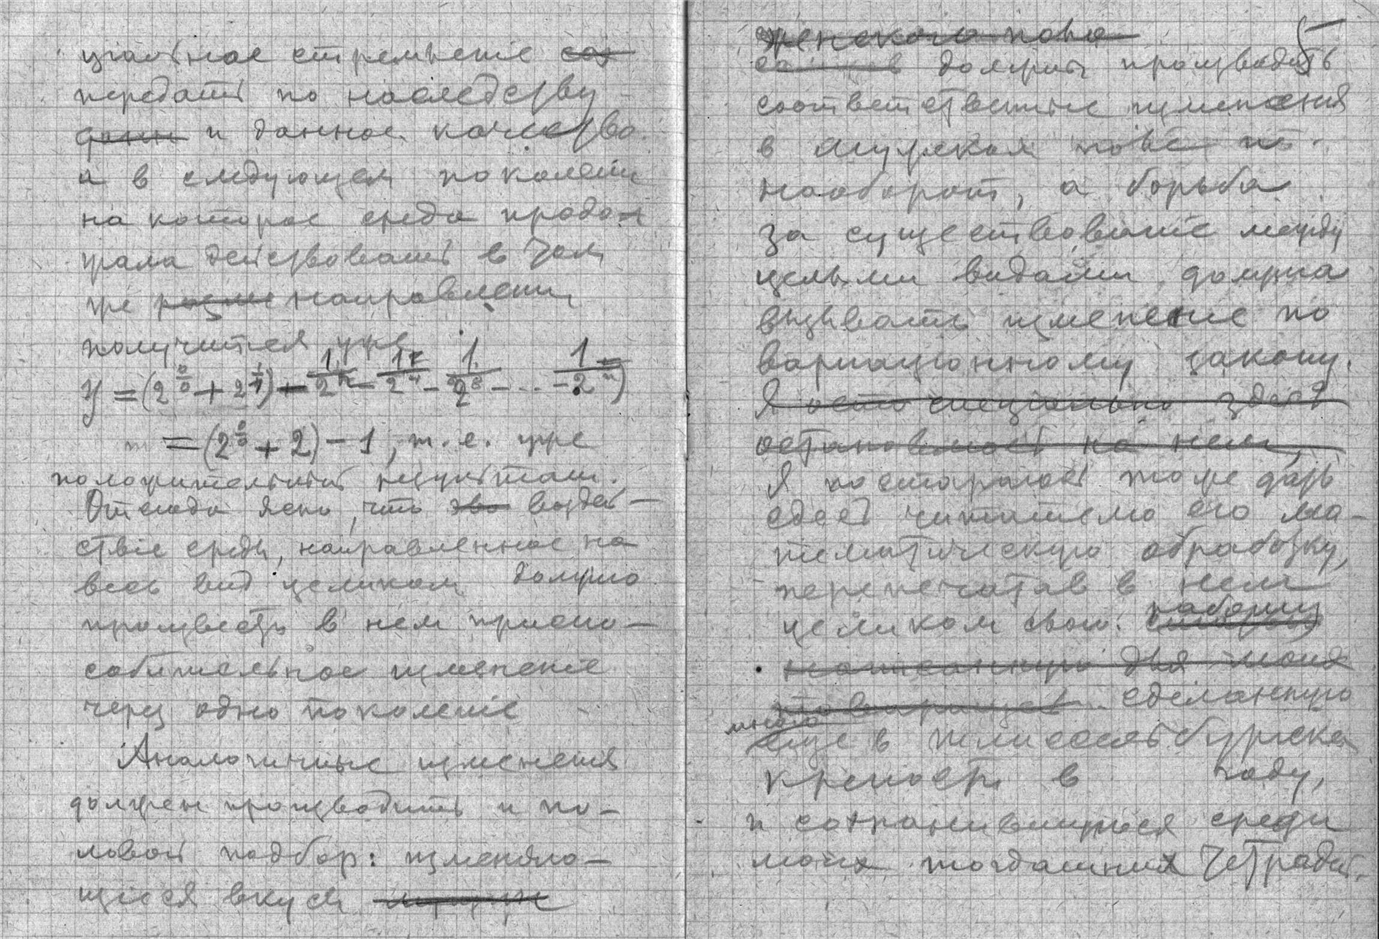 ціальное стремленіе
передать по наследству
и данное качество
и в следующем поколеніи
на которое среда продол
жала действовать в том
же направленіи
получится уже
= (2 + 2) - 1, т. е. уже
положительный результат.
Отсюда ясно, что это воздей-
ствіе среды, направленное на
весь вид целиком должно
произвесть в нем приспо-
собительное измененіе
через одно поколеніе
Аналогичные изменения
должен производить и по-
ловой подбор: изменяю-
щіеся вкусы
женского пола
5
должны производить
соответственные изменения
в мужском поле и
наоборот, а борьба
за существованіе между
целыми видами должна
вызывать измененіе по
вариаціонному закону.
Я специально здесь
остановлюсь на нем,
Я постараюсь тоже дать
здесь читателю его ма-
тематическую обработку,
перепечатав в нем
целиком свою работу
написанную для моих
товарищей сделанную
мною
еще в Шлиссельбургской
крепости в году,
и сохранившуюся среди
моих тогдашних тетрадей.